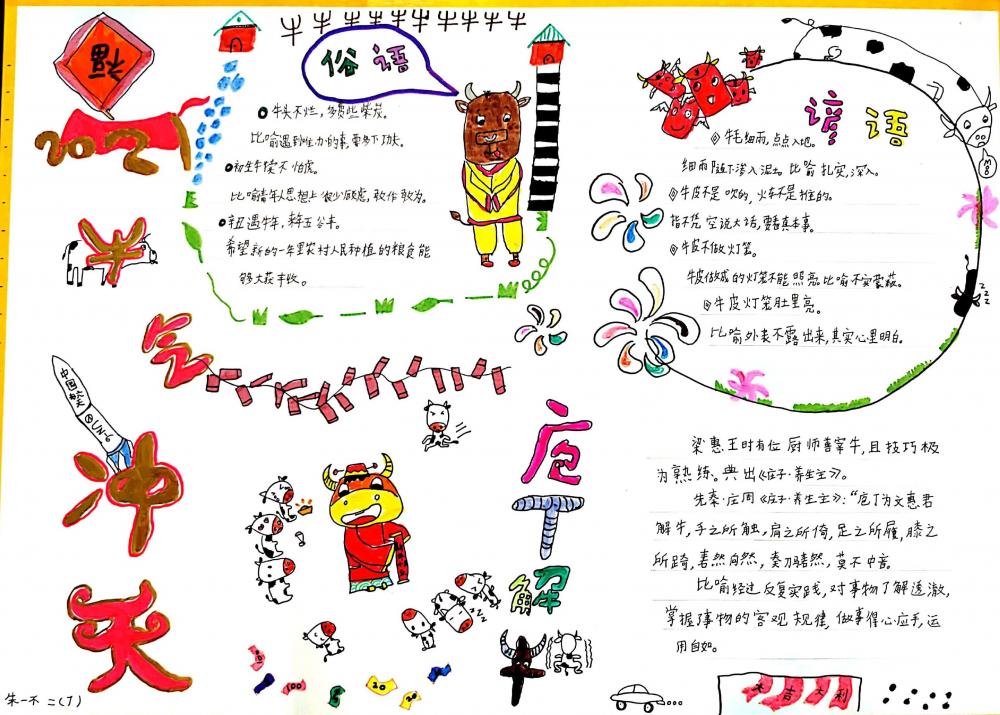 福
2021
牛
气
冲
天
中国梦
UN-6
俗语
牛头不烂,多费些柴炭。
比喻遇到难办的事,要多下功夫。
初生牛犊不怕虎。
比喻青年人思想上很少顾虑,敢作敢为。
丑遇牛年,来年五谷丰。
希望新的一年里农村人民种植的粮食能
够大获丰收。
谚语
牛毛细雨,点点入地。
细雨随下渗入泥土。比喻扎实,深入。
牛皮不是吹的,火车不是推的。
指不凭空说大话,要看真本事。
牛皮不做灯笼。
牛皮做成的灯笼不能照亮。比喻不实蒙蔽。
牛皮灯笼肚里亮。
比喻外表不露出来,其实心里明白。
MO
zzz
庖
丁
解
牛
梁惠王时有位厨师喜宰牛,且技巧极
为熟练。典出《庄子·养生主》。
先秦·庄周《庄子·养生主》:“庖丁为文惠君
解牛,手之所触,肩之所倚,足之所履,膝之
所踦,砉然向然,奏刀騞然,莫不中音。
比喻经过反复实践,对事物了解透澈,
掌握事物的客观规律,做事得心应手,运
用自如。
100
20
大吉大利
朱一不 二(7)